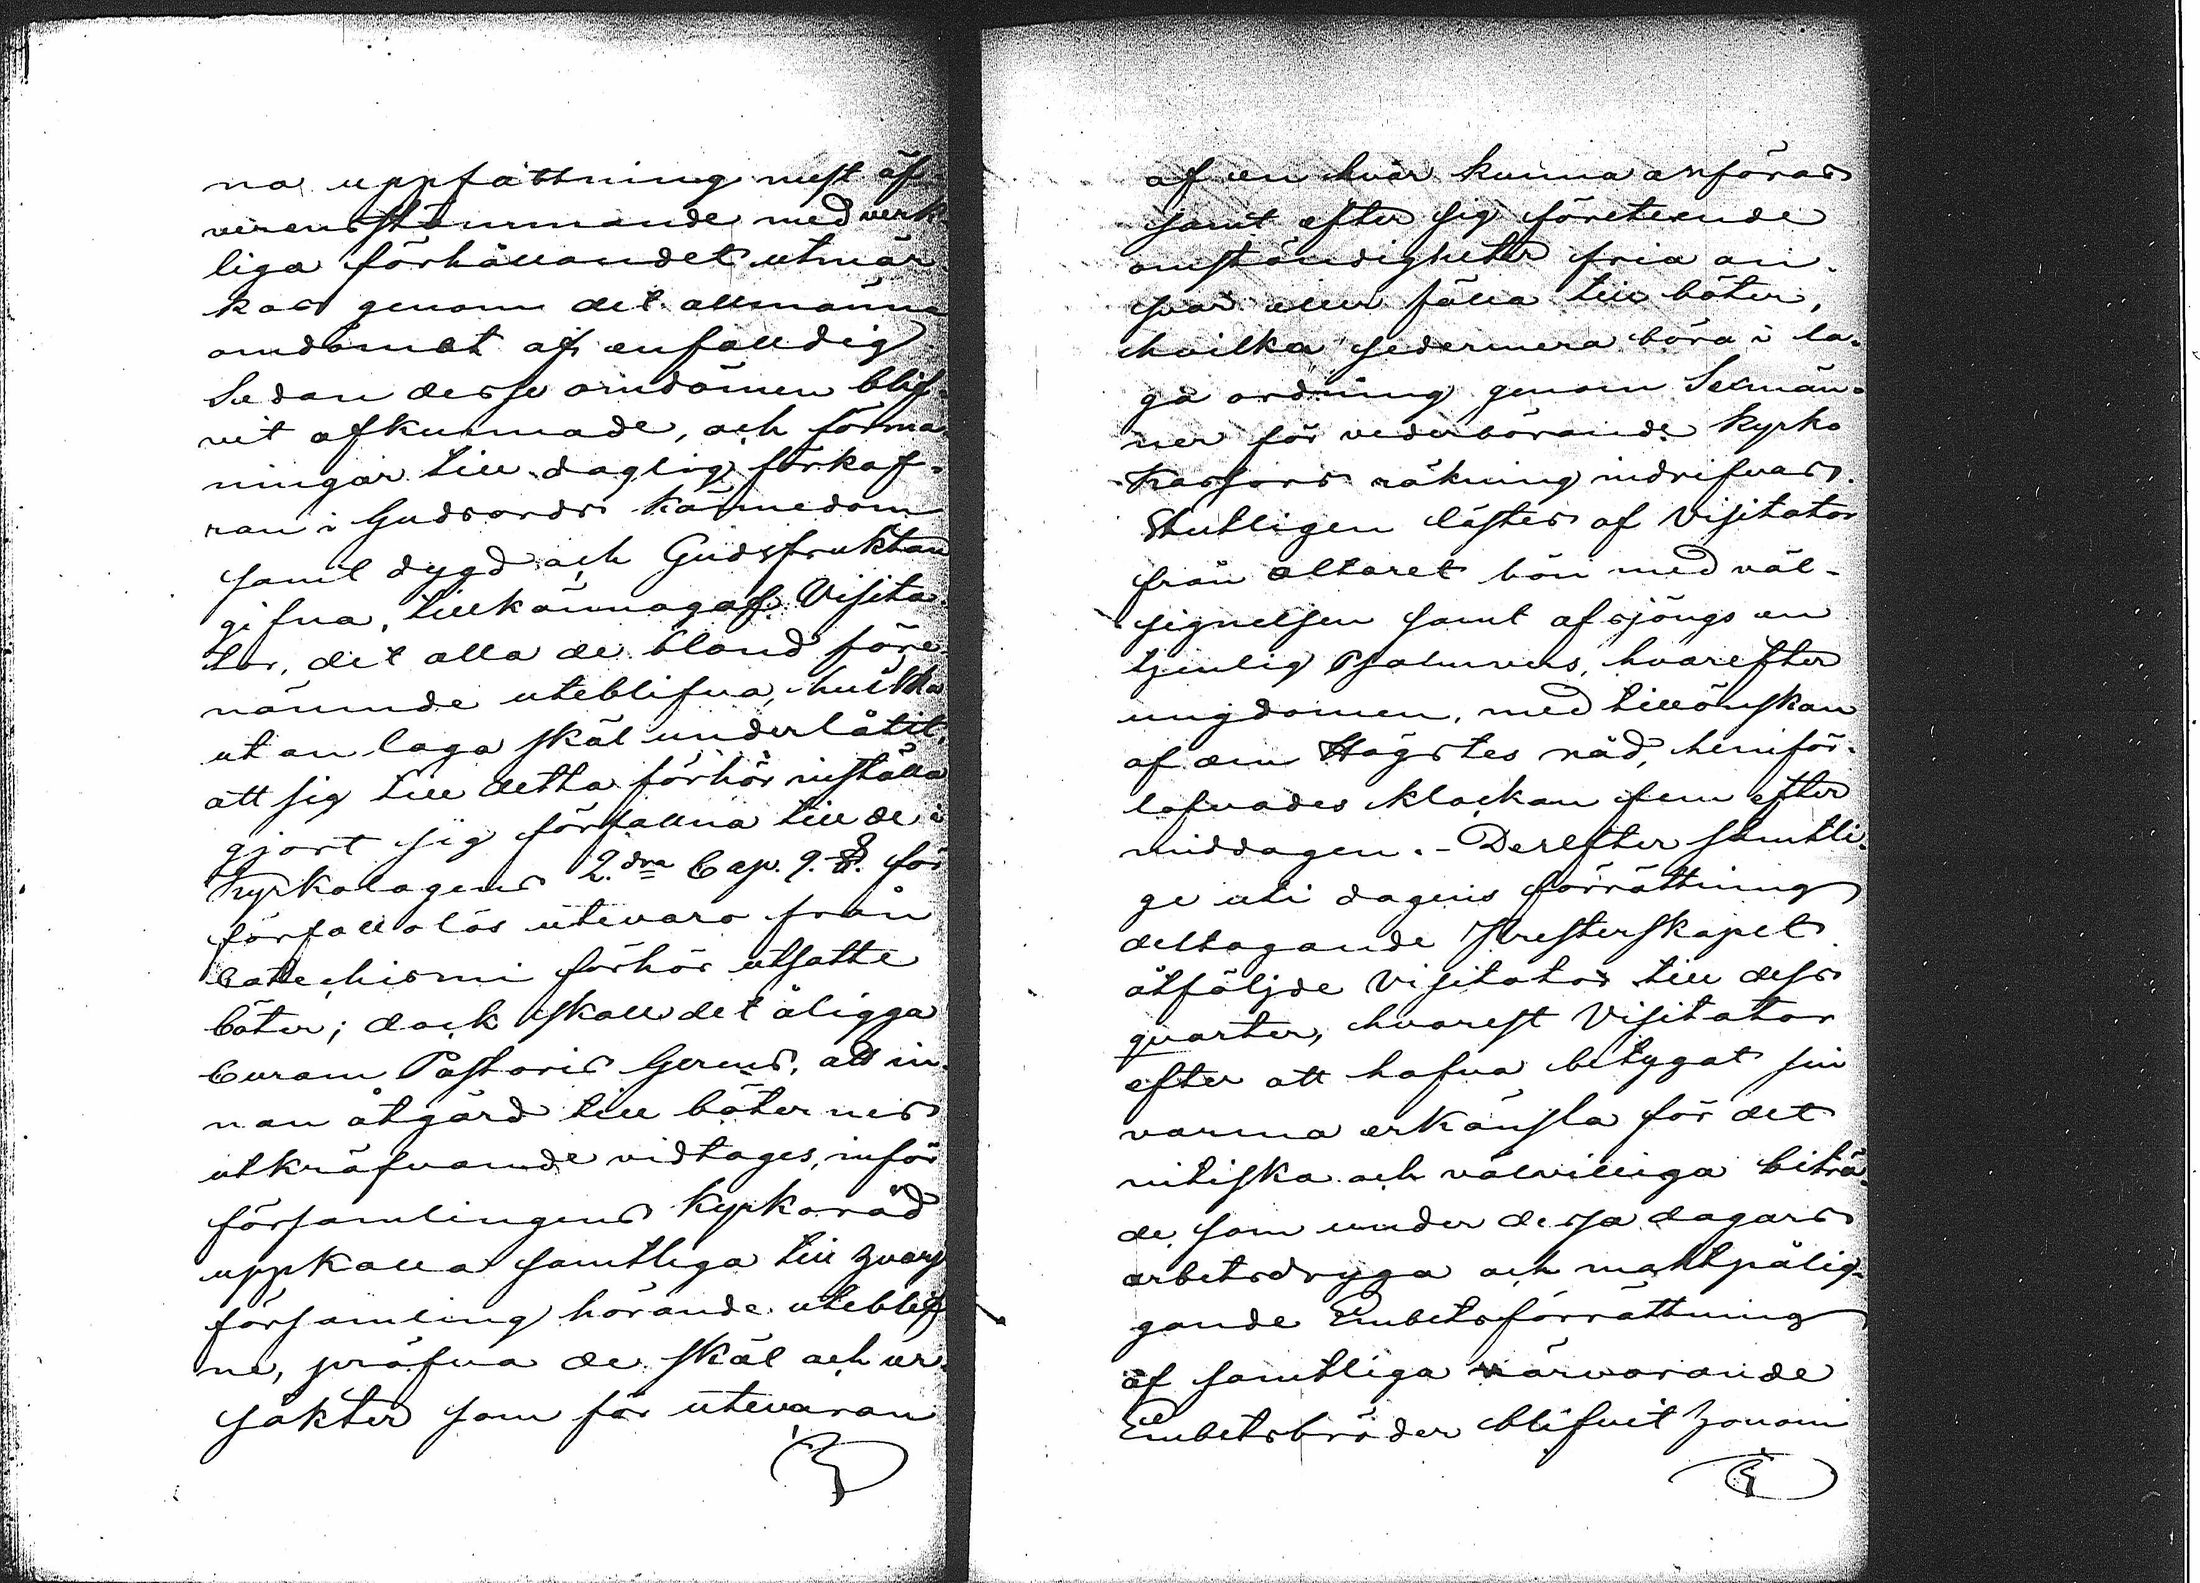 na uppfattning mest öf-
verensstämmande med verk-
liga förhållandet utmär-
kas genom det allmänna
omdömet af enfalldig
Sedan desse omdömen blif-
vit afkunnade, och förma-
ningar till daglig förkof-
ran i Gudsords kännedom
samt dygd och Gudsfruktan
gifna, tillkännagaf Visita-
tor, det alla de bland före-
nämnde uteblifna, hvilka
utan laga skäl underlåtit,
att sig till detta förhör inställa
gjort sig förfallna till de i
Kyrkolagens 2.dra Cap. 9. §. för
förfallolös utevaro från
Catechismi förhör utsatte
böter; dock skall det åligga
Curam Pastoris Gerens, att in-
nan åtgärd till böternes
utkräfvande vidtages, inför
församlingens Kyrkoråd
uppkalla samtliga till hvarje
församling hörande uteblif-
ne, pröfva de skäl och or-
sakter som för utevaran
af en hvar kunna anföras
samt efter sig företeende
omständigheter fria an-
svar eller fälla till böter,
hvilka sedermera böra i la-
ga ordning genom Sexmän-
ner för vederbörande Kyrko
Kassors räkning indrifvas.
Slutligen lästes af Visitator
från altaret bön med väl-
signelsen samt afsjöngs en
tjenlig Psalmvers, hvarefter
ungdomen, med tillönskan
af den Högstes nåd, hemför-
lofvades klockan fem efter
middagen. - Derefter samtli-
ge uti dagens förrättning
deltagande Presterskapet
åtföljde Visitator till dess
qvarter, hvarest Visitator
efter att hafva betygat sin
varma erkänsla för det
nitiska och välvilliga biträ-
de som under dessa dagars
arbetsdryga och maktpålig-
gande Embetsförrättning
af samtliga närvarande
Embetsbröder blifvit honom